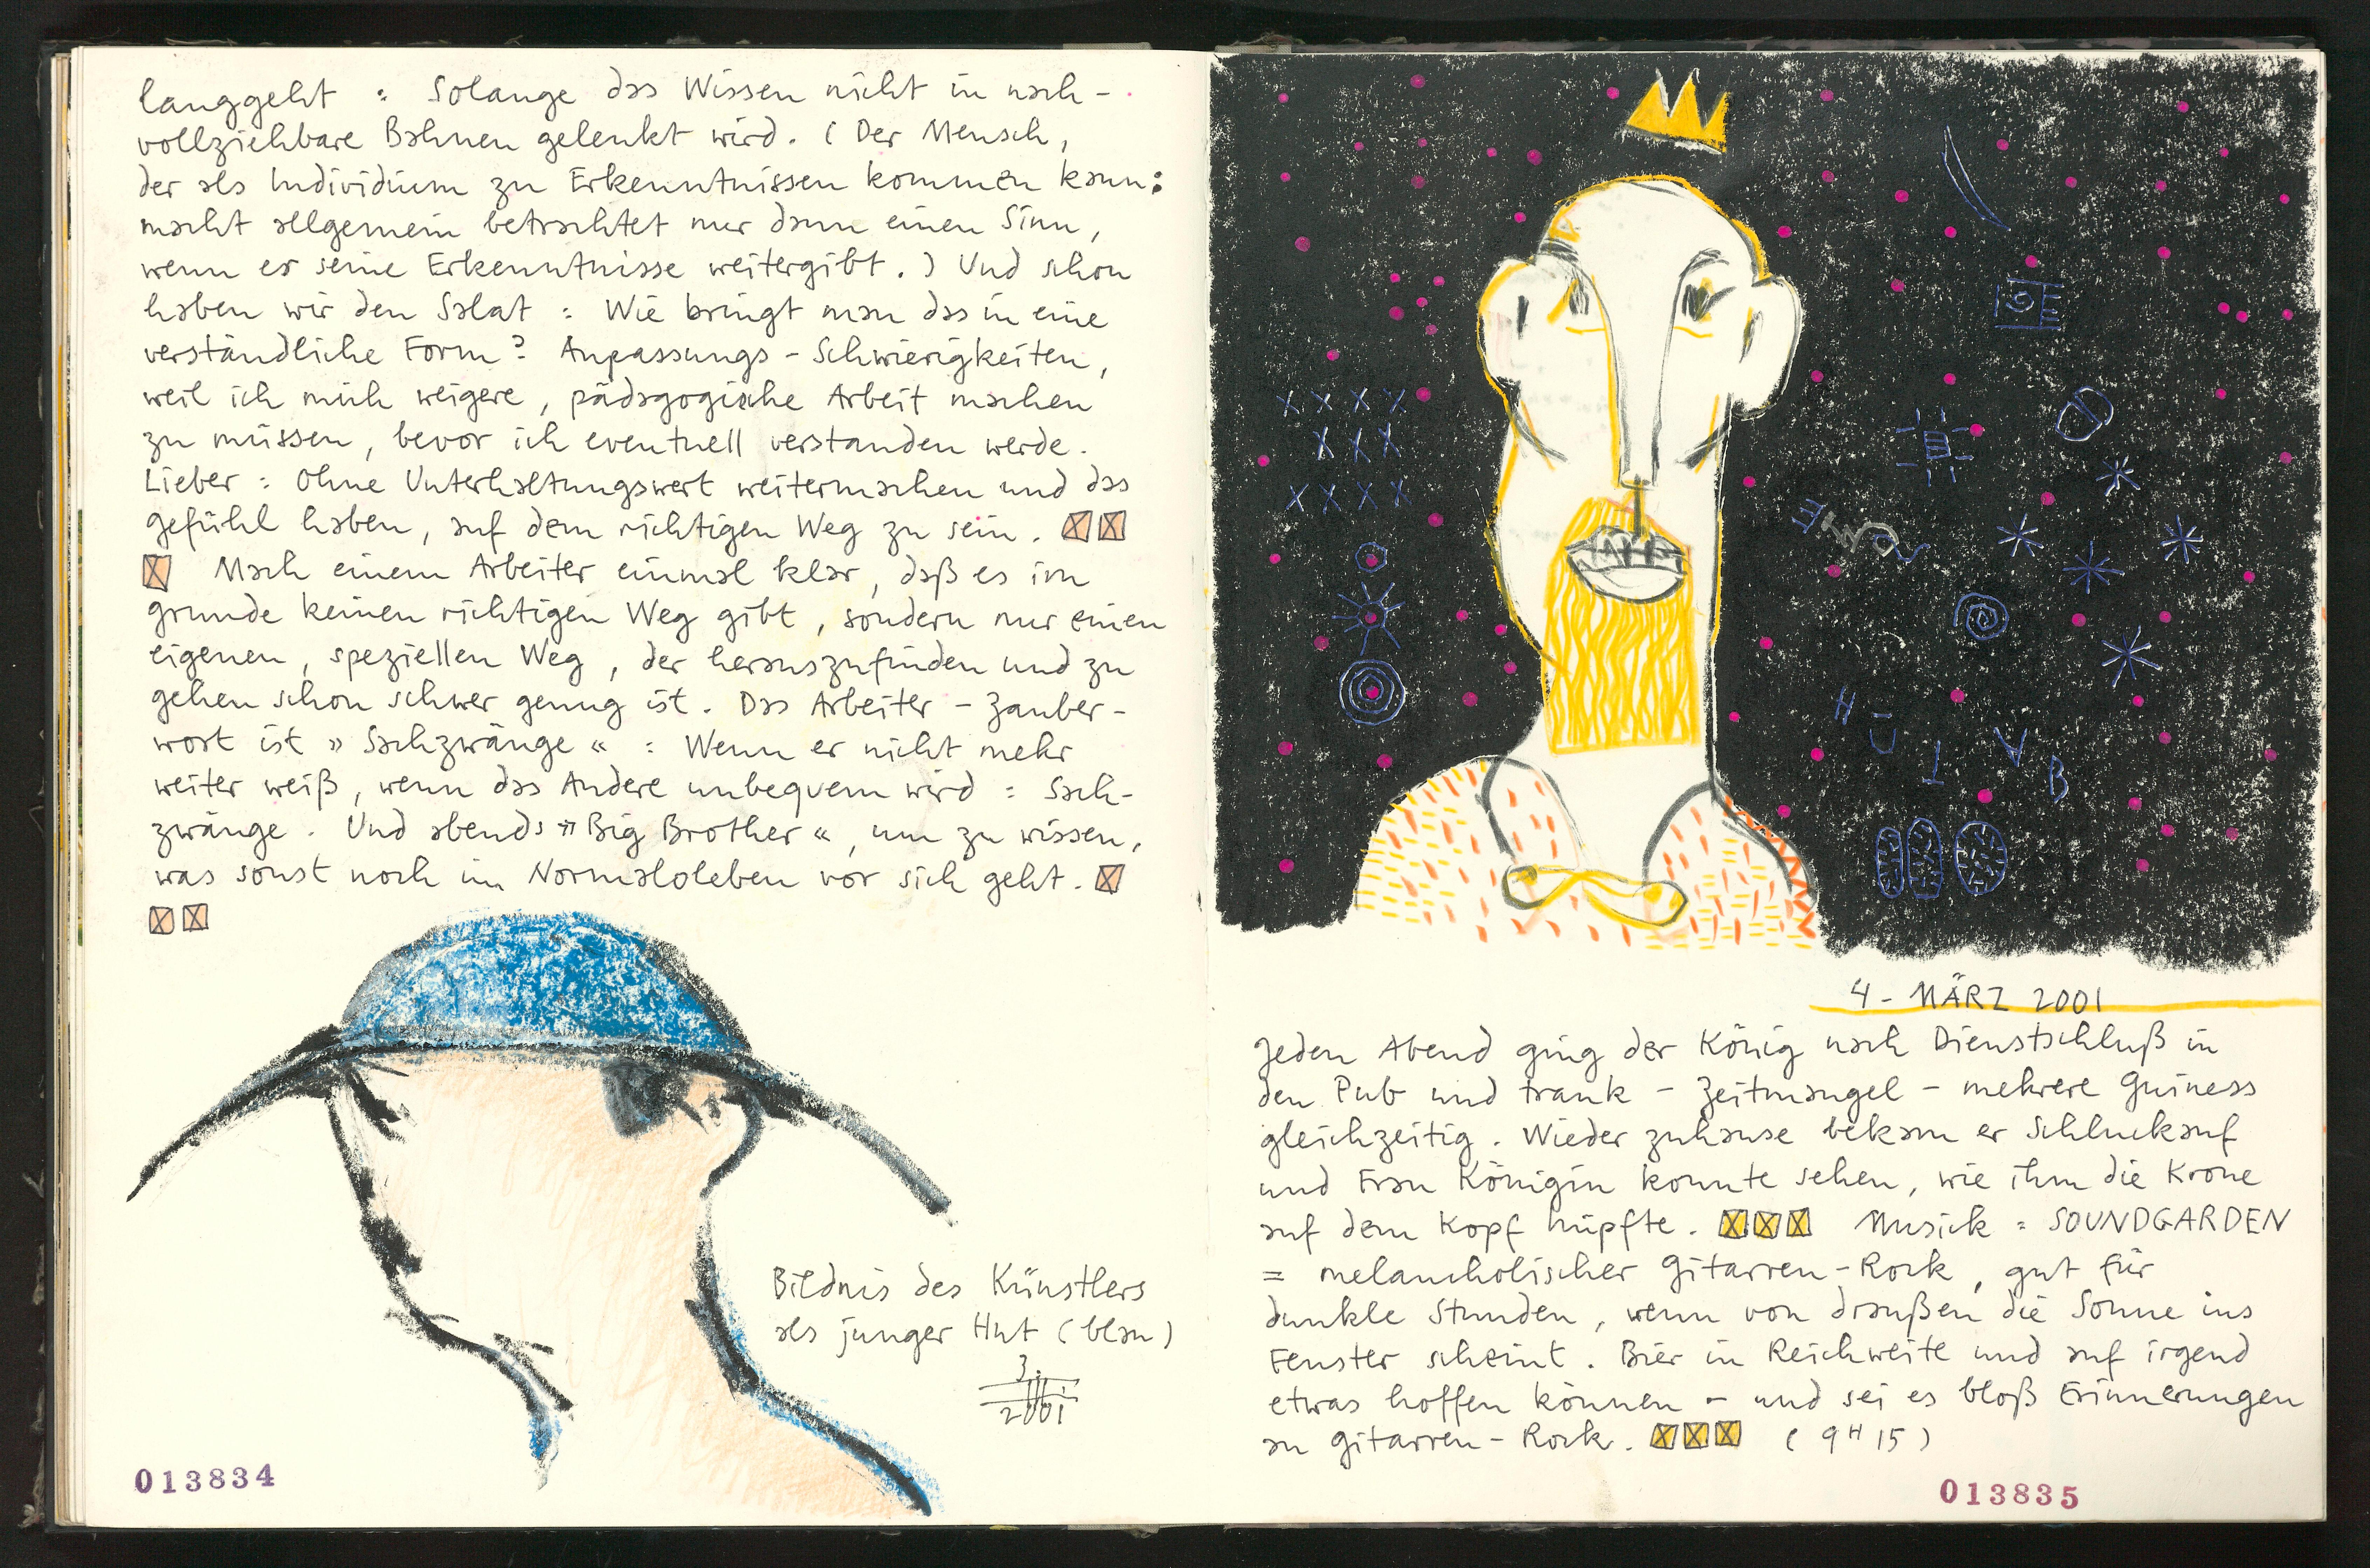 langgeht : Solange das Wissen nicht in nach-
vollziehbare Bahnen gelenkt wird. (Der Mensch,
der als Individium zu Erkenntnissen kommen kann:
macht allgemein betrachtet nur dann einen Sinn,
wenn er seine Erkenntnisse weitergibt.) Und schon
haben wir den Salat : Wie bringt man das in eine
verständliche Form? Anpassungs-Schwierigkeiten,
weil ich mich weigere, pädagogische Arbeit machen
zu müssen, bevor ich eventuell verstanden werde.
Lieber : Ohne Unterhaltungswert weitermachen und das
Gefühl haben, auf dem richtigen Weg zu sein.
Mach einem Arbeiter einmal klar, daß es im
Grunde keinen richtigen Weg gibt, sondern nur einen
eigenen, speziellen Weg, der herauszufinden und zu
gehen schon schwer genug ist. Das Arbeiter-Zauber-
wort ist »Sachzwänge« : Wenn er nicht mehr
weiter weiß, wenn das Andere unbequem wird : Sach-
zwänge. Und abends »Big Brother«, um zu wissen,
was sonst noch im Normaloleben vor sich geht.
Bildnis des Künstlers
als junger Hut (blau)
3.
2001
013834
4. MÄRZ 2001
Jeden Abend ging der König nach Dienstschluß in
den Pub und trank - Zeitmangel - mehrere Guiness
gleichzeitig. Wieder zuhause bekam er Schluckauf
und Frau Königin konnte sehen, wie ihm die Krone
auf dem Kopf hüpfte. Musick : SOUNDGARDEN
= melancholischer Gitarren-Rock, gut für
dunkle Stunden, wenn von draußen die Sonne ins
Fenster scheint. Bier in Reichweite und auf irgend
etwas hoffen können - und sei es bloß Erinnerungen
an Gitarren-Rock. (9H15)
013835